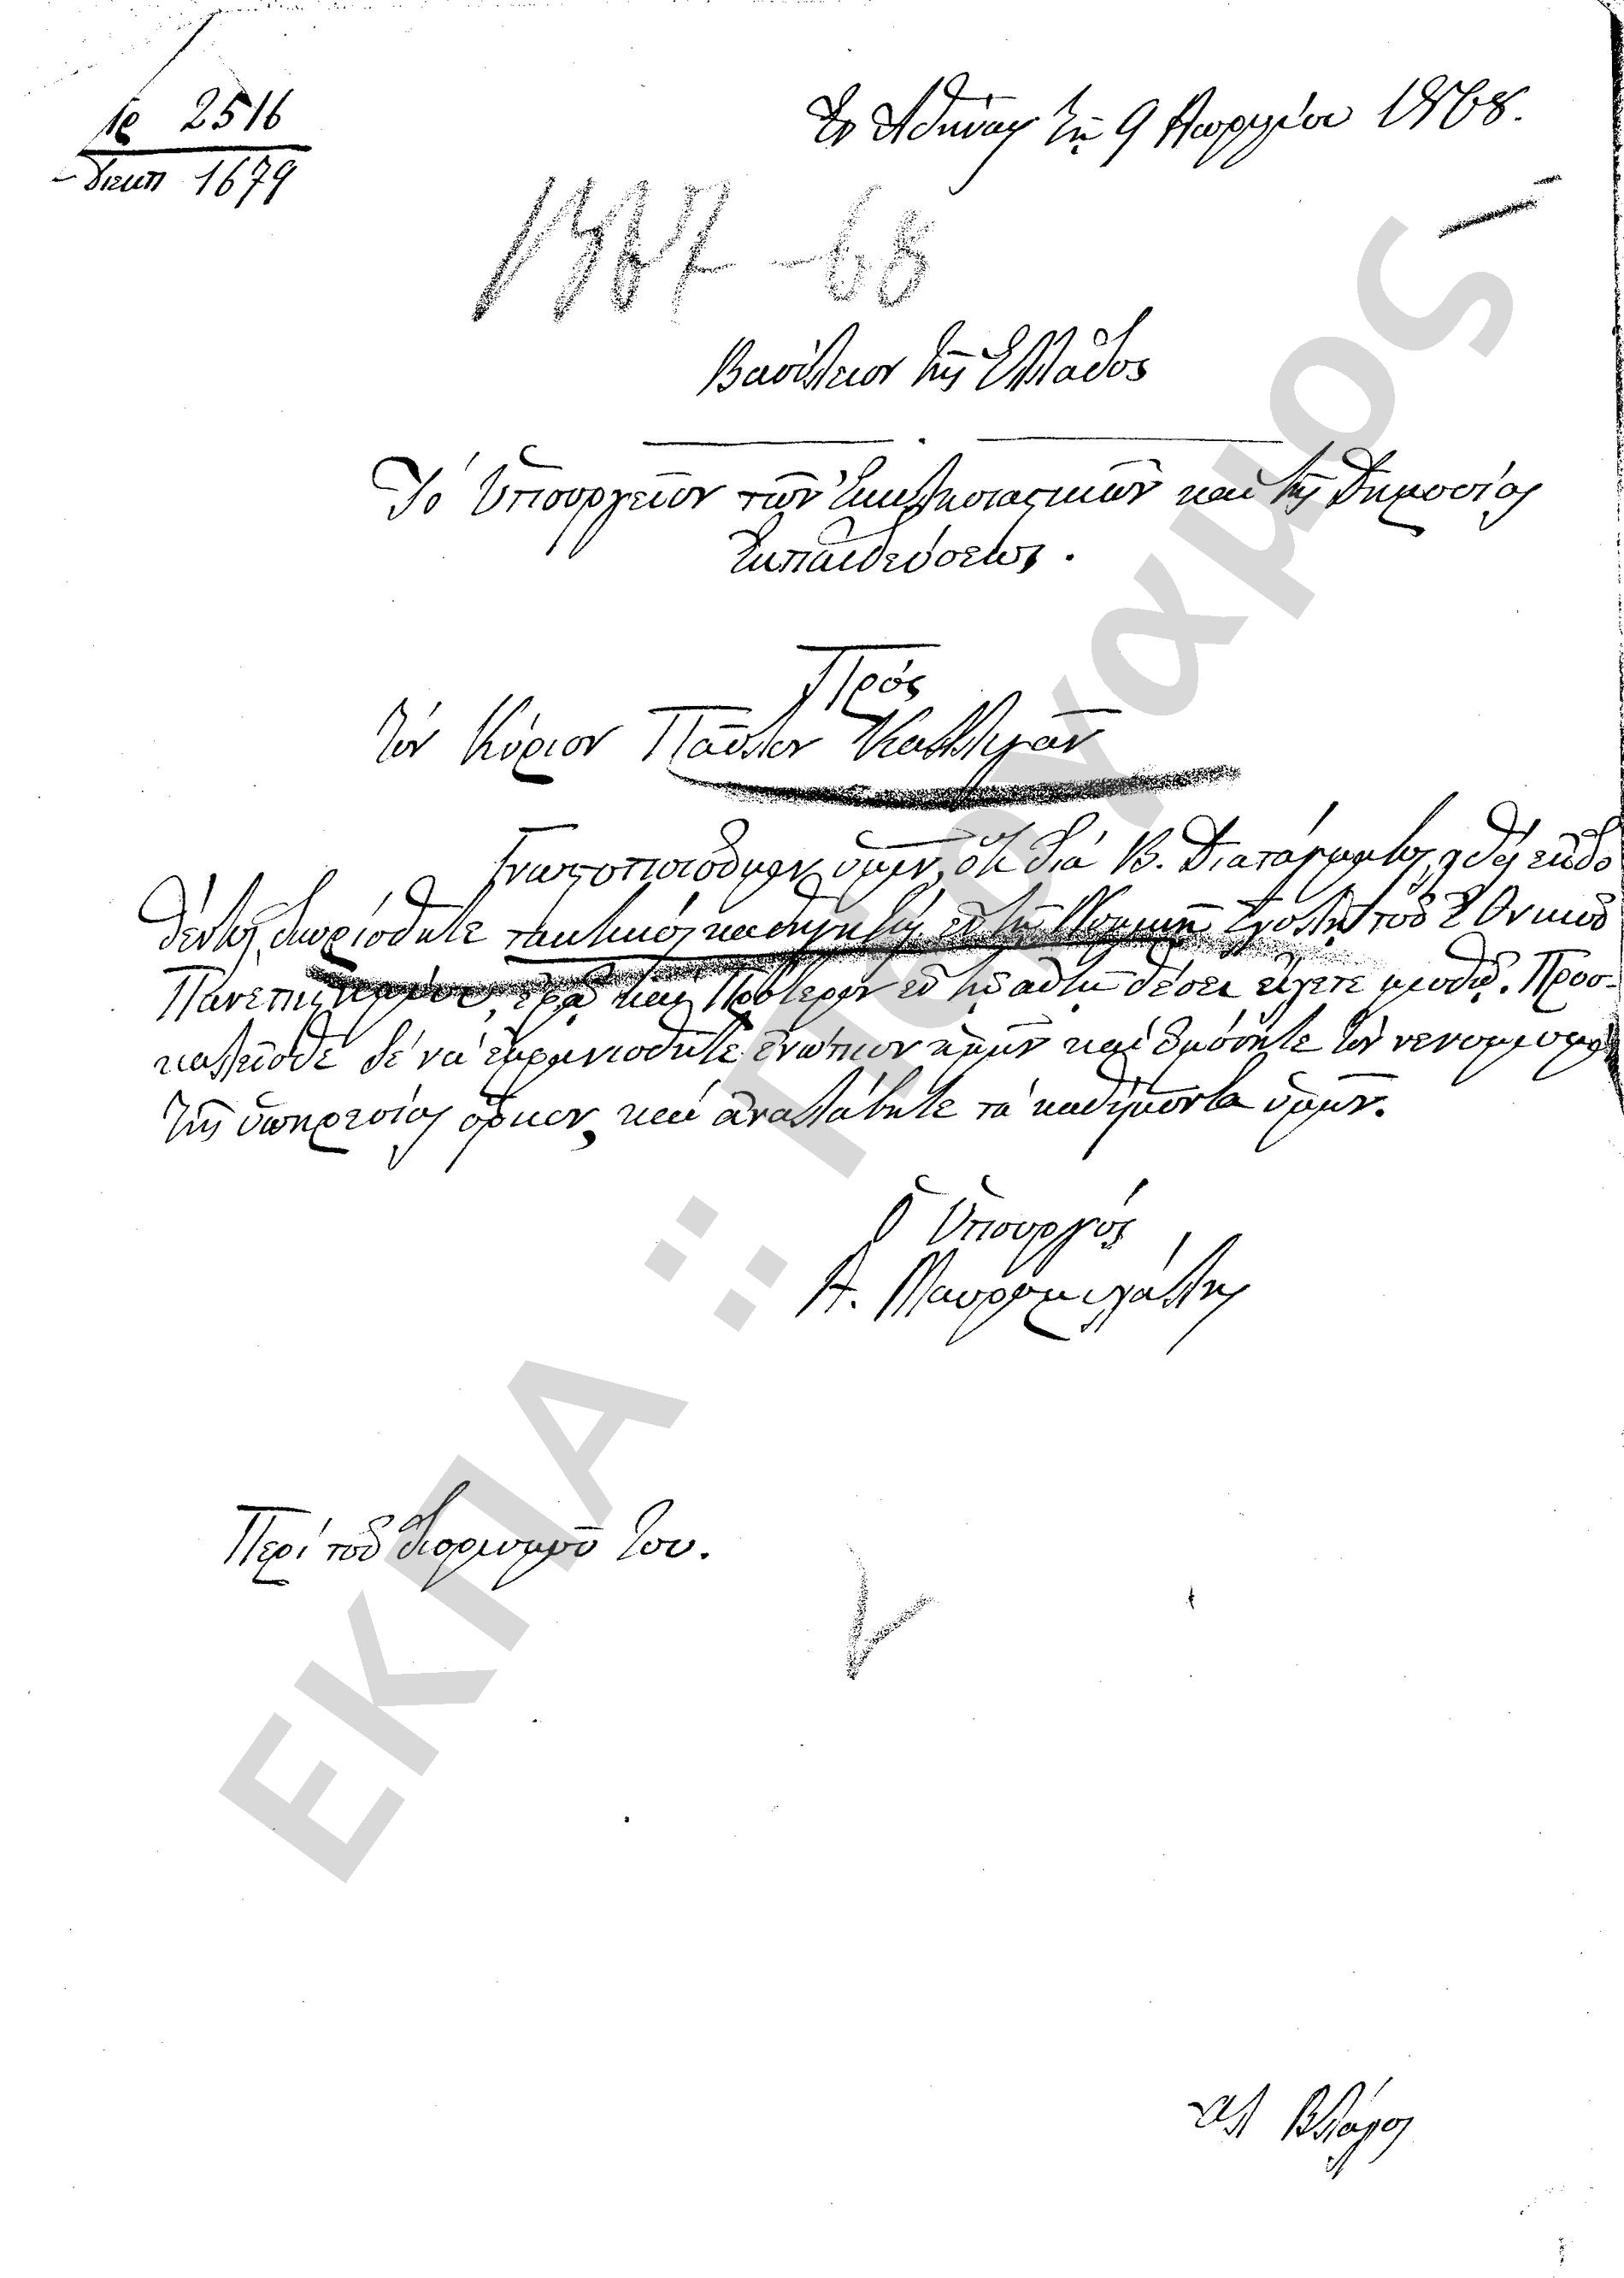 2516
1679
Ἐν Ἀθήναις τῇ 9 1868.
1867-68
Βασίλειον τῆς Ἑλλάδος
Τὸ Ὑπουργεῖον τῶν Ἐκκλησιαστικῶν καὶ τῆς Δημοσίας
Ἐκπαιδεύσεως.
Πρὸς
τὸν Κύριον Παῦλον Καλλιγᾶν
Γνωστοποιοῦμεν ὑμῖν, ὅτι διὰ Β. Διατάγματος, χθὲς ἐκδο
θέντος, διωρίσθητε τακτικὸς καθηγητὴς ἐν τῇ Νομικῇ Σχολῇ τοῦ Ἐθνικοῦ
Πανεπιστημίου, ἐφ' ᾧ καὶ πρότερον ἐν τῇ αὐτῇ θέσει εἴχετε μισθῷ. Προσ-
καλεῖσθε δὲ νὰ ἐμφανισθῆτε ἐνώπιον ἡμῶν καὶ ὀμόσητε τὸν νενομισμένον
τῆς ὑπηρεσίας ὅρκον, καὶ ἀναλάβητε τὰ καθήκοντα ὑμῶν.
Ὁ Ὑπουργός
Α. Μαυρομιχάλης
Περὶ τοῦ διορισμοῦ του.
Βλάχος
ΕΚΠΑ :: Πέργαμος